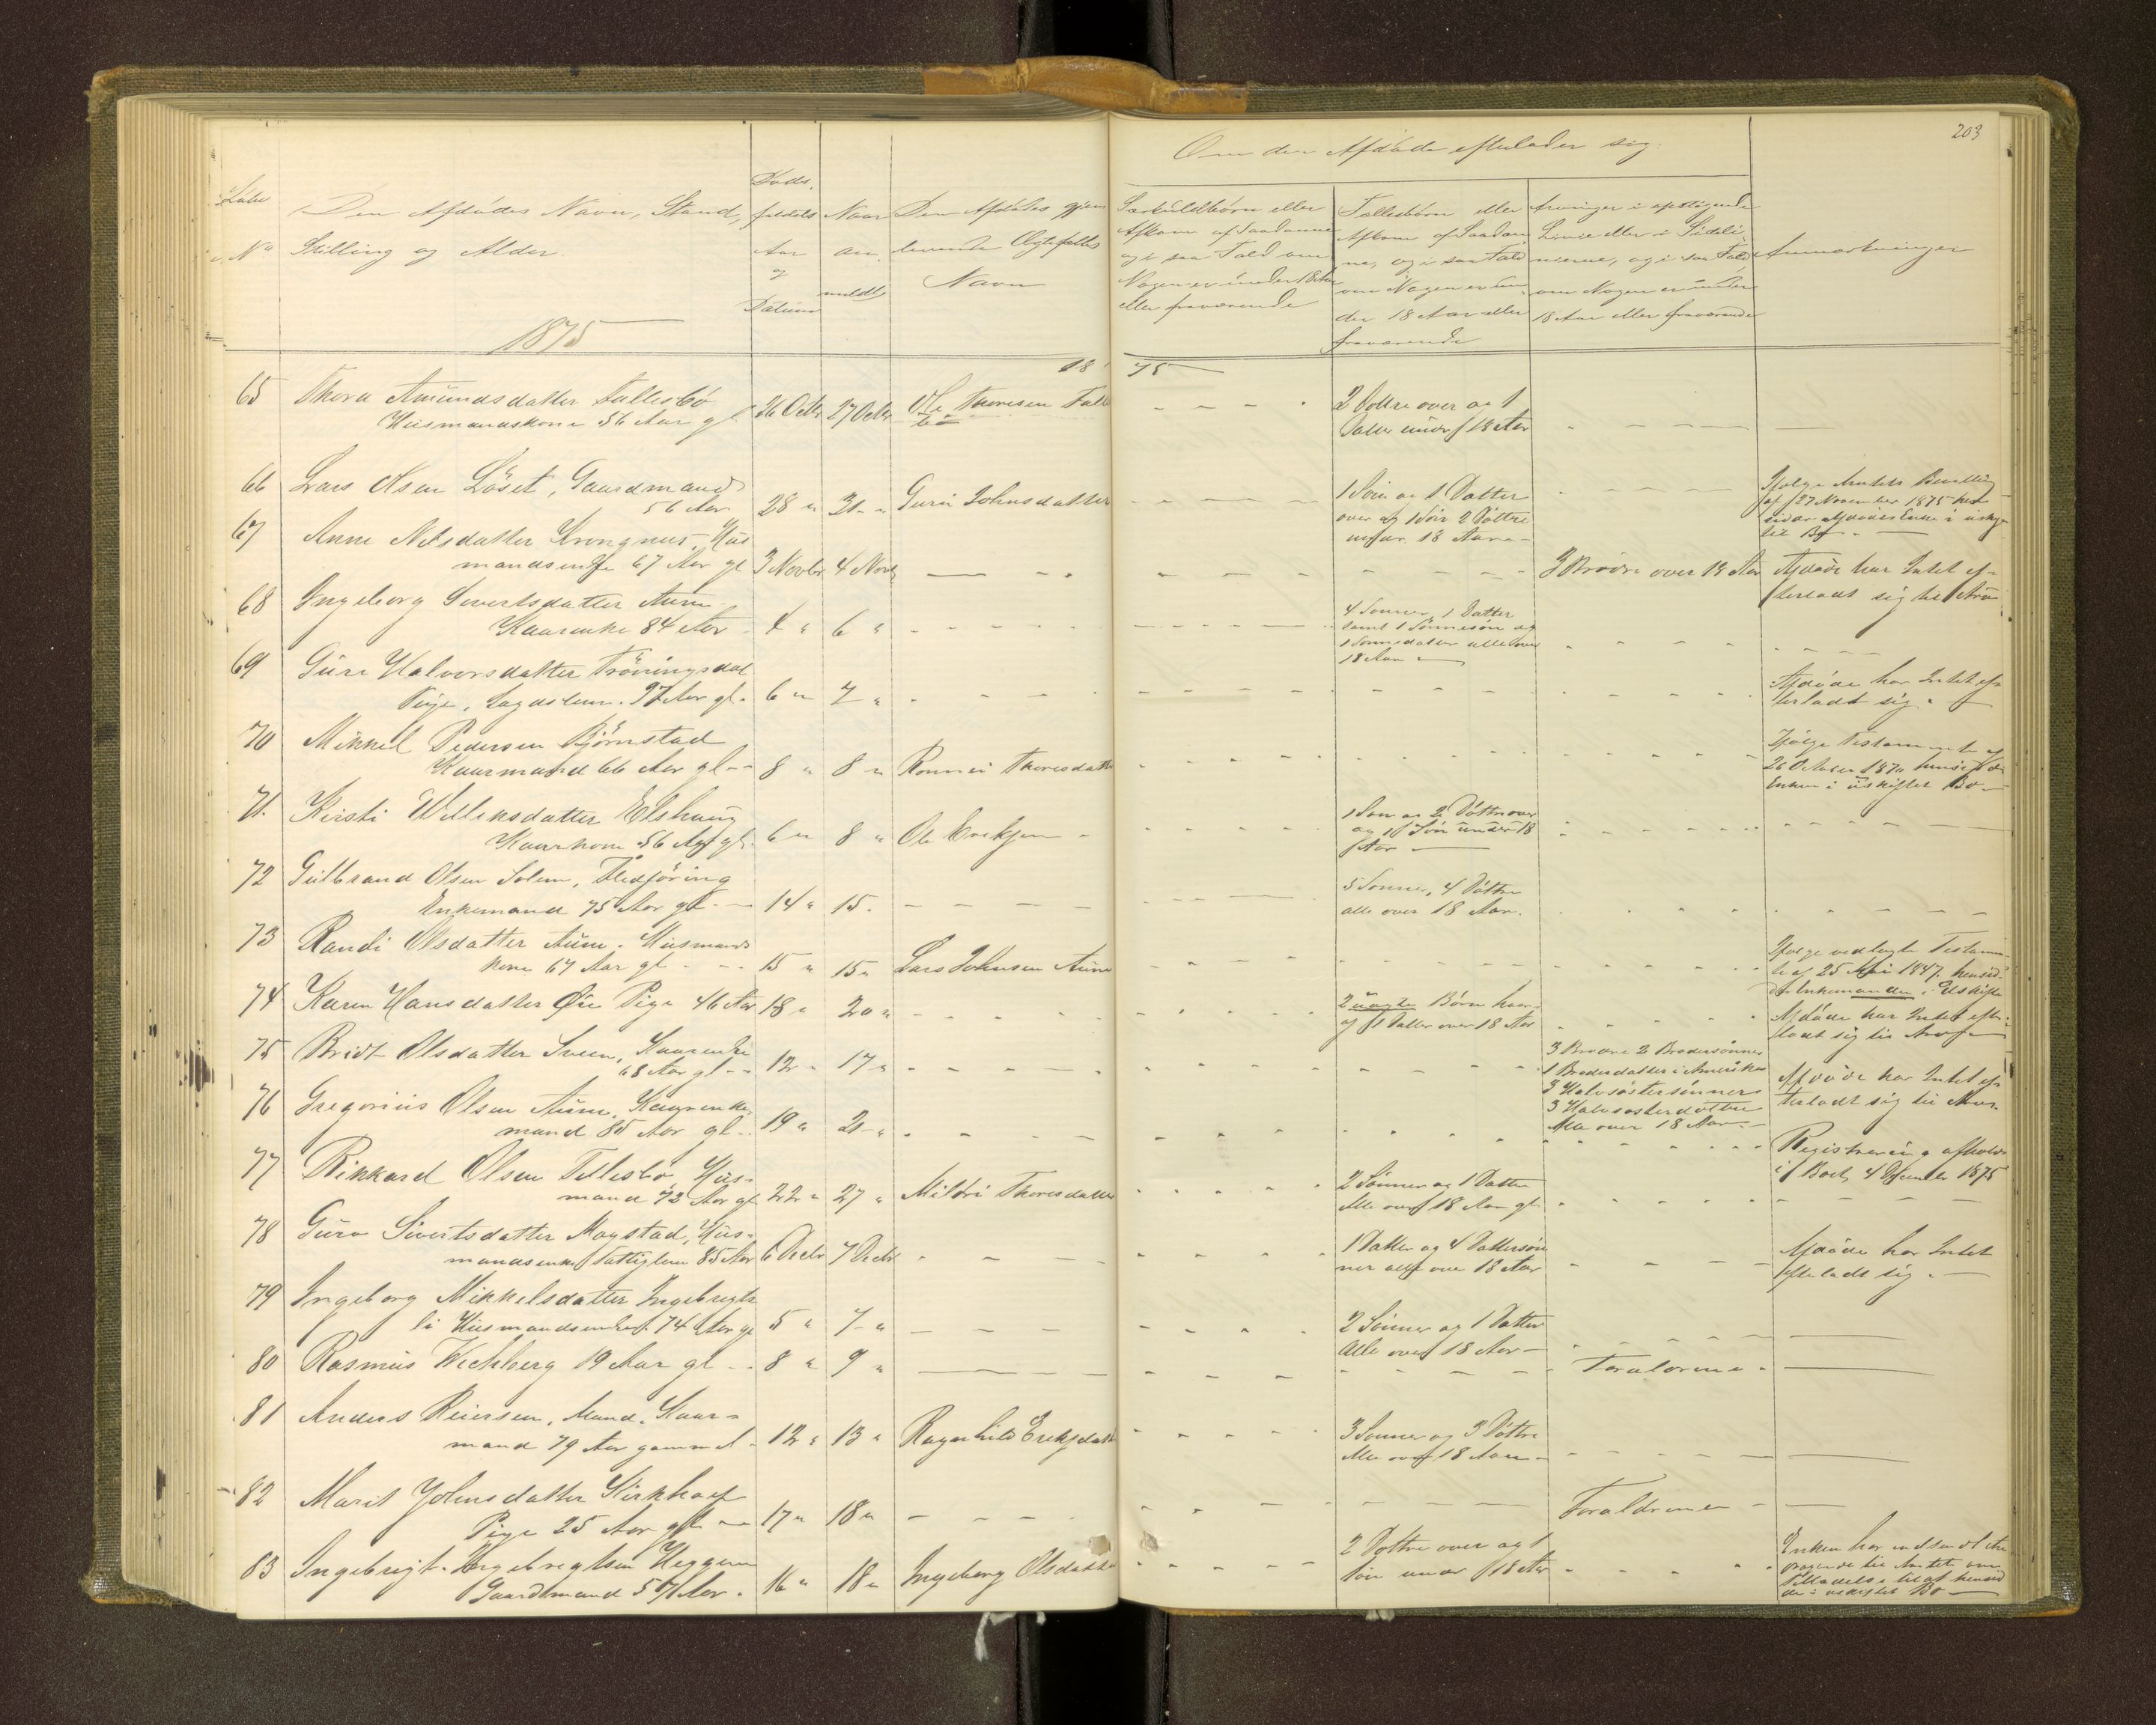 203
Om den Afdöde efterlader sig.
Löbe
No
Den Afdödes Navn, Stand,
Stilling og Alder.
1875
Döds-
faldets
Aar
og
Datum
Naar
an
meldt
Den Afdödes gjen
levende Ægtefælles
Navn
Særkuldbörn eller
Afkom af Saadanne
og i saa Fald om
Nogen er under 18 Aar
eller fraværende
Fællesbörn eller
Afkom af Saadan
ne, og i saa Fald
om Nogen er un
der 18 Aar eller
fraværende
Arvinger i opstigende
Linie eller i Sideli
nierne, og i saa Fald
om Nogen er under
18 Aar eller fraværende
Anmærkninger
18 75
65 Thora Amundsdatter Tallesbö
Huusmandskone 56 Aar gl 26 Octbr 27 Octbr Ole Thoresen Talles
bö
2 Döttre over og 1
Datter under 18 Aar
66 Lars Olsen Löset, Gaardmand
56 Aar 28 " 31 " Guru Johnsdatter
1 Sön og 1 Datter
over og 1 Sön 2 Döttre
under 18 Aar
Ifölge Amtets Bevilling
af 27 November 1875 hen
sidder Afdödes Enke i uskif
tet Bo
67 Anne Nilsdatter Krongnus, Huus
mandsenke 67 Aar gl 3 Novbr 4 Novb
3 Brödre over 18 Aar
Afdöde har Intet ef
terladt sig til Arv
68 Ingeborg Sivertsdatter Aune
Kaarenke 84 Aar 4 " 6 "
4 Sönner, 1 Datter
samt 1 Sönnesön og
1 Sönnedatter alle over
18 Aar
69 Guri Halvorsdatter Tröningsdal
Pige, Lægdslem. 97 Aar gl. 6 " 7 "
Afdöde har Intet ef
terladt sig.
70 Mikkel Pedersen Björnstad
Kaarmand 66 Aar gl 8 " 8 " Ronnei Thoresdatter
Ifölge Testamente af
26 October 1870 hensidder
Enken i uskiftet Bo
71. Kirsti Willensdatter Elshaug
Kaarkone 56 Aar gl. 6 " 8 " Ole Eriksen
1 Sön og 2 Döttre over
og 1 Sön under 18
Aar
72 Gulbrand Olsen Solem, Fledföring
Enkemand 75 Aar gl 14 " 15.
5 Sönner, 4 Döttre
alle over 18 Aar.
73 Randi Olsdatter Aune. Huusmands
kone 67 Aar gl 15 " 15 " Lars Johnsen Aune
Ifölge vedlagte Testamen
te af 25 Mai 1847. hensid
der Enkemanden i Uskiftet
74 Karen Hansdatter Öie Pige 46 Aar 18 " 20 "
2 uægte Börn hvor
af 1 Datter over 18 Aar
Afdöde har Intet efter
ladt sig til Arv
75 Bridt Olsdatter Sveen, Kaarenke
68 Aar gl 12 " 17 "
3 Brödre 2 Brodersönner
1 Broderdatter i Amerika
3 Halvsöstersönner
3 Halvsösterdöttre
Alle over 18 Aar
Afdöde har Intet ef
terladt sig til Arv.
76 Gregorius Olsen Aune, Kaarenke
mand 85 Aar gl 19 " 21 "
Registrering afholdt
i Boet, 4 December 1875
77 Rikkard Olsen Tellesbö, Huus-
mand 72 Aar gl 22 " 27 " Mildri Thoresdatter
2 Sönner og 1 Datter
Alle over 18 Aar gl
78 Guro Sivertsdatter Magstad, Huus-
mandsenke Fattiglem 85 Aar 6 Decbr 7 Decbr
1 Datter og 4 Dattersön
ner alle over 18 Aar
Afdöde har Intet
efterladt sig.
79 Ingeborg Mikkelsdatter Ingebrigts
li Huusmandsenke. 74 Aar gl 5 " 7 "
2 Sönner og 1 Datter
Alle over 18 Aar
80 Rasmus Wichberg 19 Aar gl 8 " 9 "
Forældrene
81 Anders Reiersen, Mand, Kaar-
mand 79 Aar gammel 12 " 13 " Ragnhild Eriksdatter
3 Sönner og 3 Döttre
Alle over 18 Aar
82 Marit Johnsdatter Kirkhoel
Pige 25 Aar gl 17 " 18 "
Forældrene
83 Ingebrigt Ingebrigtsen Heggem
Gaardmand 57 Aar. 16 " 18 " Ingeborg Olsdatter
2 Döttre over og 1
Sön under 18 Aar
Enken har indsendt An
dragende til Amtet om
Tilladelse til at hensid
de i uskiftet Bo